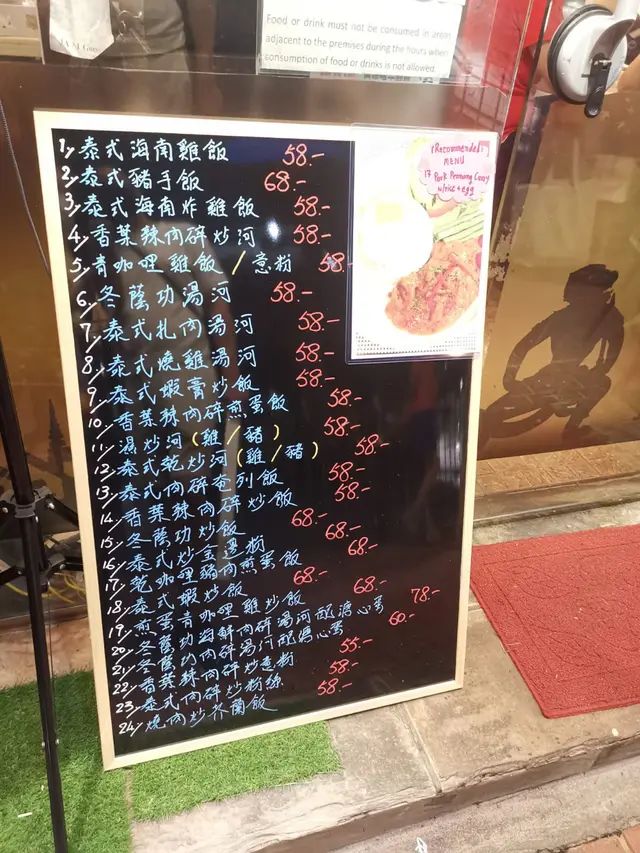 Food or drink must not be consumed in areas
adjacent to the premises during the hours when
consumption of food or drinks is not allowed.
1/ 泰式海南雞飯 58.-
2/ 泰式豬手飯 68.-
3/ 泰式海南炸雞飯 58.-
4/ 香葉辣肉碎炒河 58.-
5/ 青咖哩雞飯/意粉 58.-
6/ 冬蔭功湯河 58.-
7/ 泰式扎肉湯河 58.-
8/ 泰式燒雞湯河 58.-
9/ 泰式蝦膏炒飯 58.-
10/ 香葉辣肉碎煎蛋飯 58.-
11/ 濕炒河(雞/豬) 58.-
12/ 泰式乾炒河(雞/豬) 58.-
13/ 泰式肉碎奄列飯 58.-
14/ 香葉辣肉碎炒飯 58.-
15/ 冬蔭功炒飯 68.-
16/ 泰式炒金邊粉 68.-
17/ 乾咖哩豬肉煎蛋飯 68.-
18/ 泰式蝦炒飯 68.-
19/ 煎蛋青咖哩雞炒飯 68.-
20/ 冬蔭功海鮮肉碎湯河配溏心蛋 78.-
21/ 冬蔭功肉碎湯河配溏心蛋 60.-
22/ 香葉辣肉碎炒意粉 55.-
23/ 泰式肉碎炒粉絲 58.-
24/ 燒肉炒芥蘭飯 58.-
Recommended
MENU
17 Pork Penang Curry
w/rice + egg